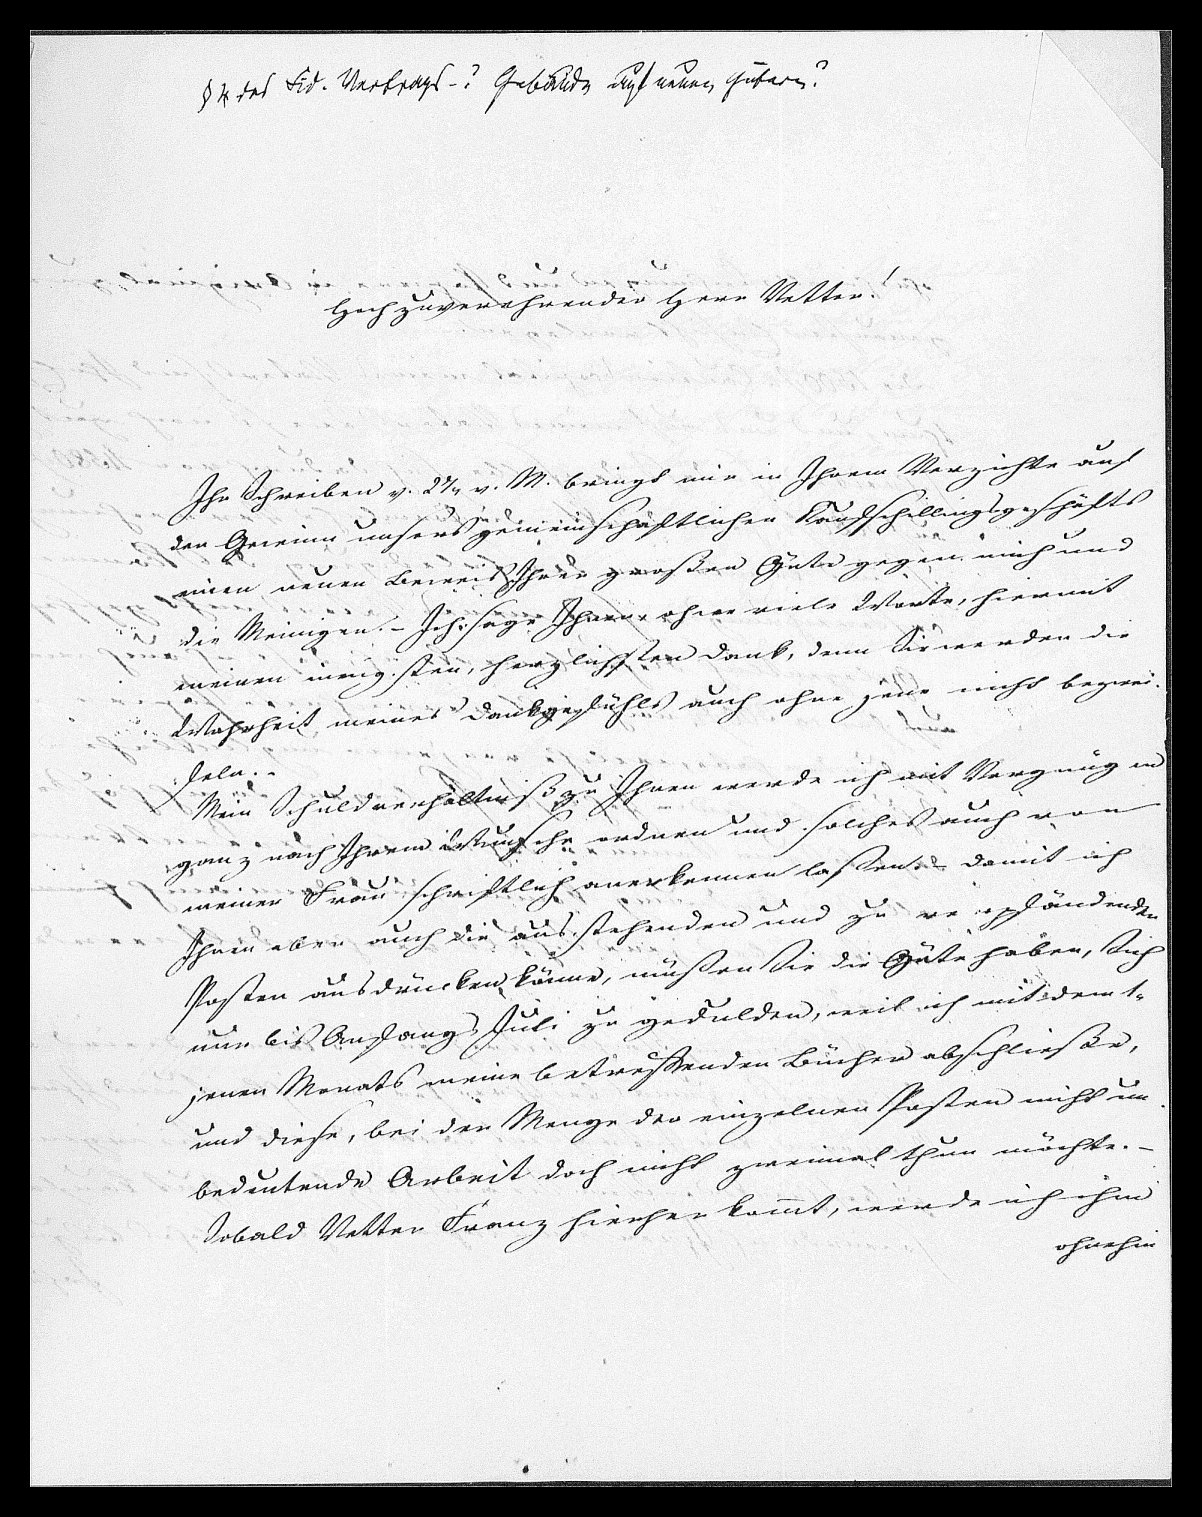 § 4 des Fid. Vertrags-? Gebäude auf neuen Gütern?
Hochzuverehrender Herr Vetter!
Ihr Schreiben v. 27. v. M. bringt mir in Ihrem Verzichte auf
den Gewinn unsers gemeinschäftlichen Kaufschillingsgeschäfts
einen neuen Beweis Ihrer großen Güte gegen mich und
die Meinigen. – Ich sage Ihnen, ohne viele Worte, hiermit
meinen innigsten, herzlichsten Dank, denn Sie werden die
Wahrheit meines Dankgefühls auch ohne jene nicht bezwei-
feln. –
Mein Schuldverhältniß zu Ihnen werde ich mit Vergnügen
ganz nach Ihrem Wunsche ordnen und solches auch von
meiner Frau schriftlich anerkennen laßen. Damit ich
Ihnen aber auch die ausstehenden und zu verpfändenden
Posten ausdrücken könne, müßen Sie die Güte haben, Sich
nur bis Anfangs Juli zu gedulden, weil ich mit dem 1.
jenen Monats meine betreffenden Bücher abschließe,
und diese, bei der Menge der einzelnen Posten nicht un-
bedeutende Arbeit doch nicht zweimal thun möchte. –
Sobald Vetter Franz hierher kom̄t, werde ich ihm
ohnehin